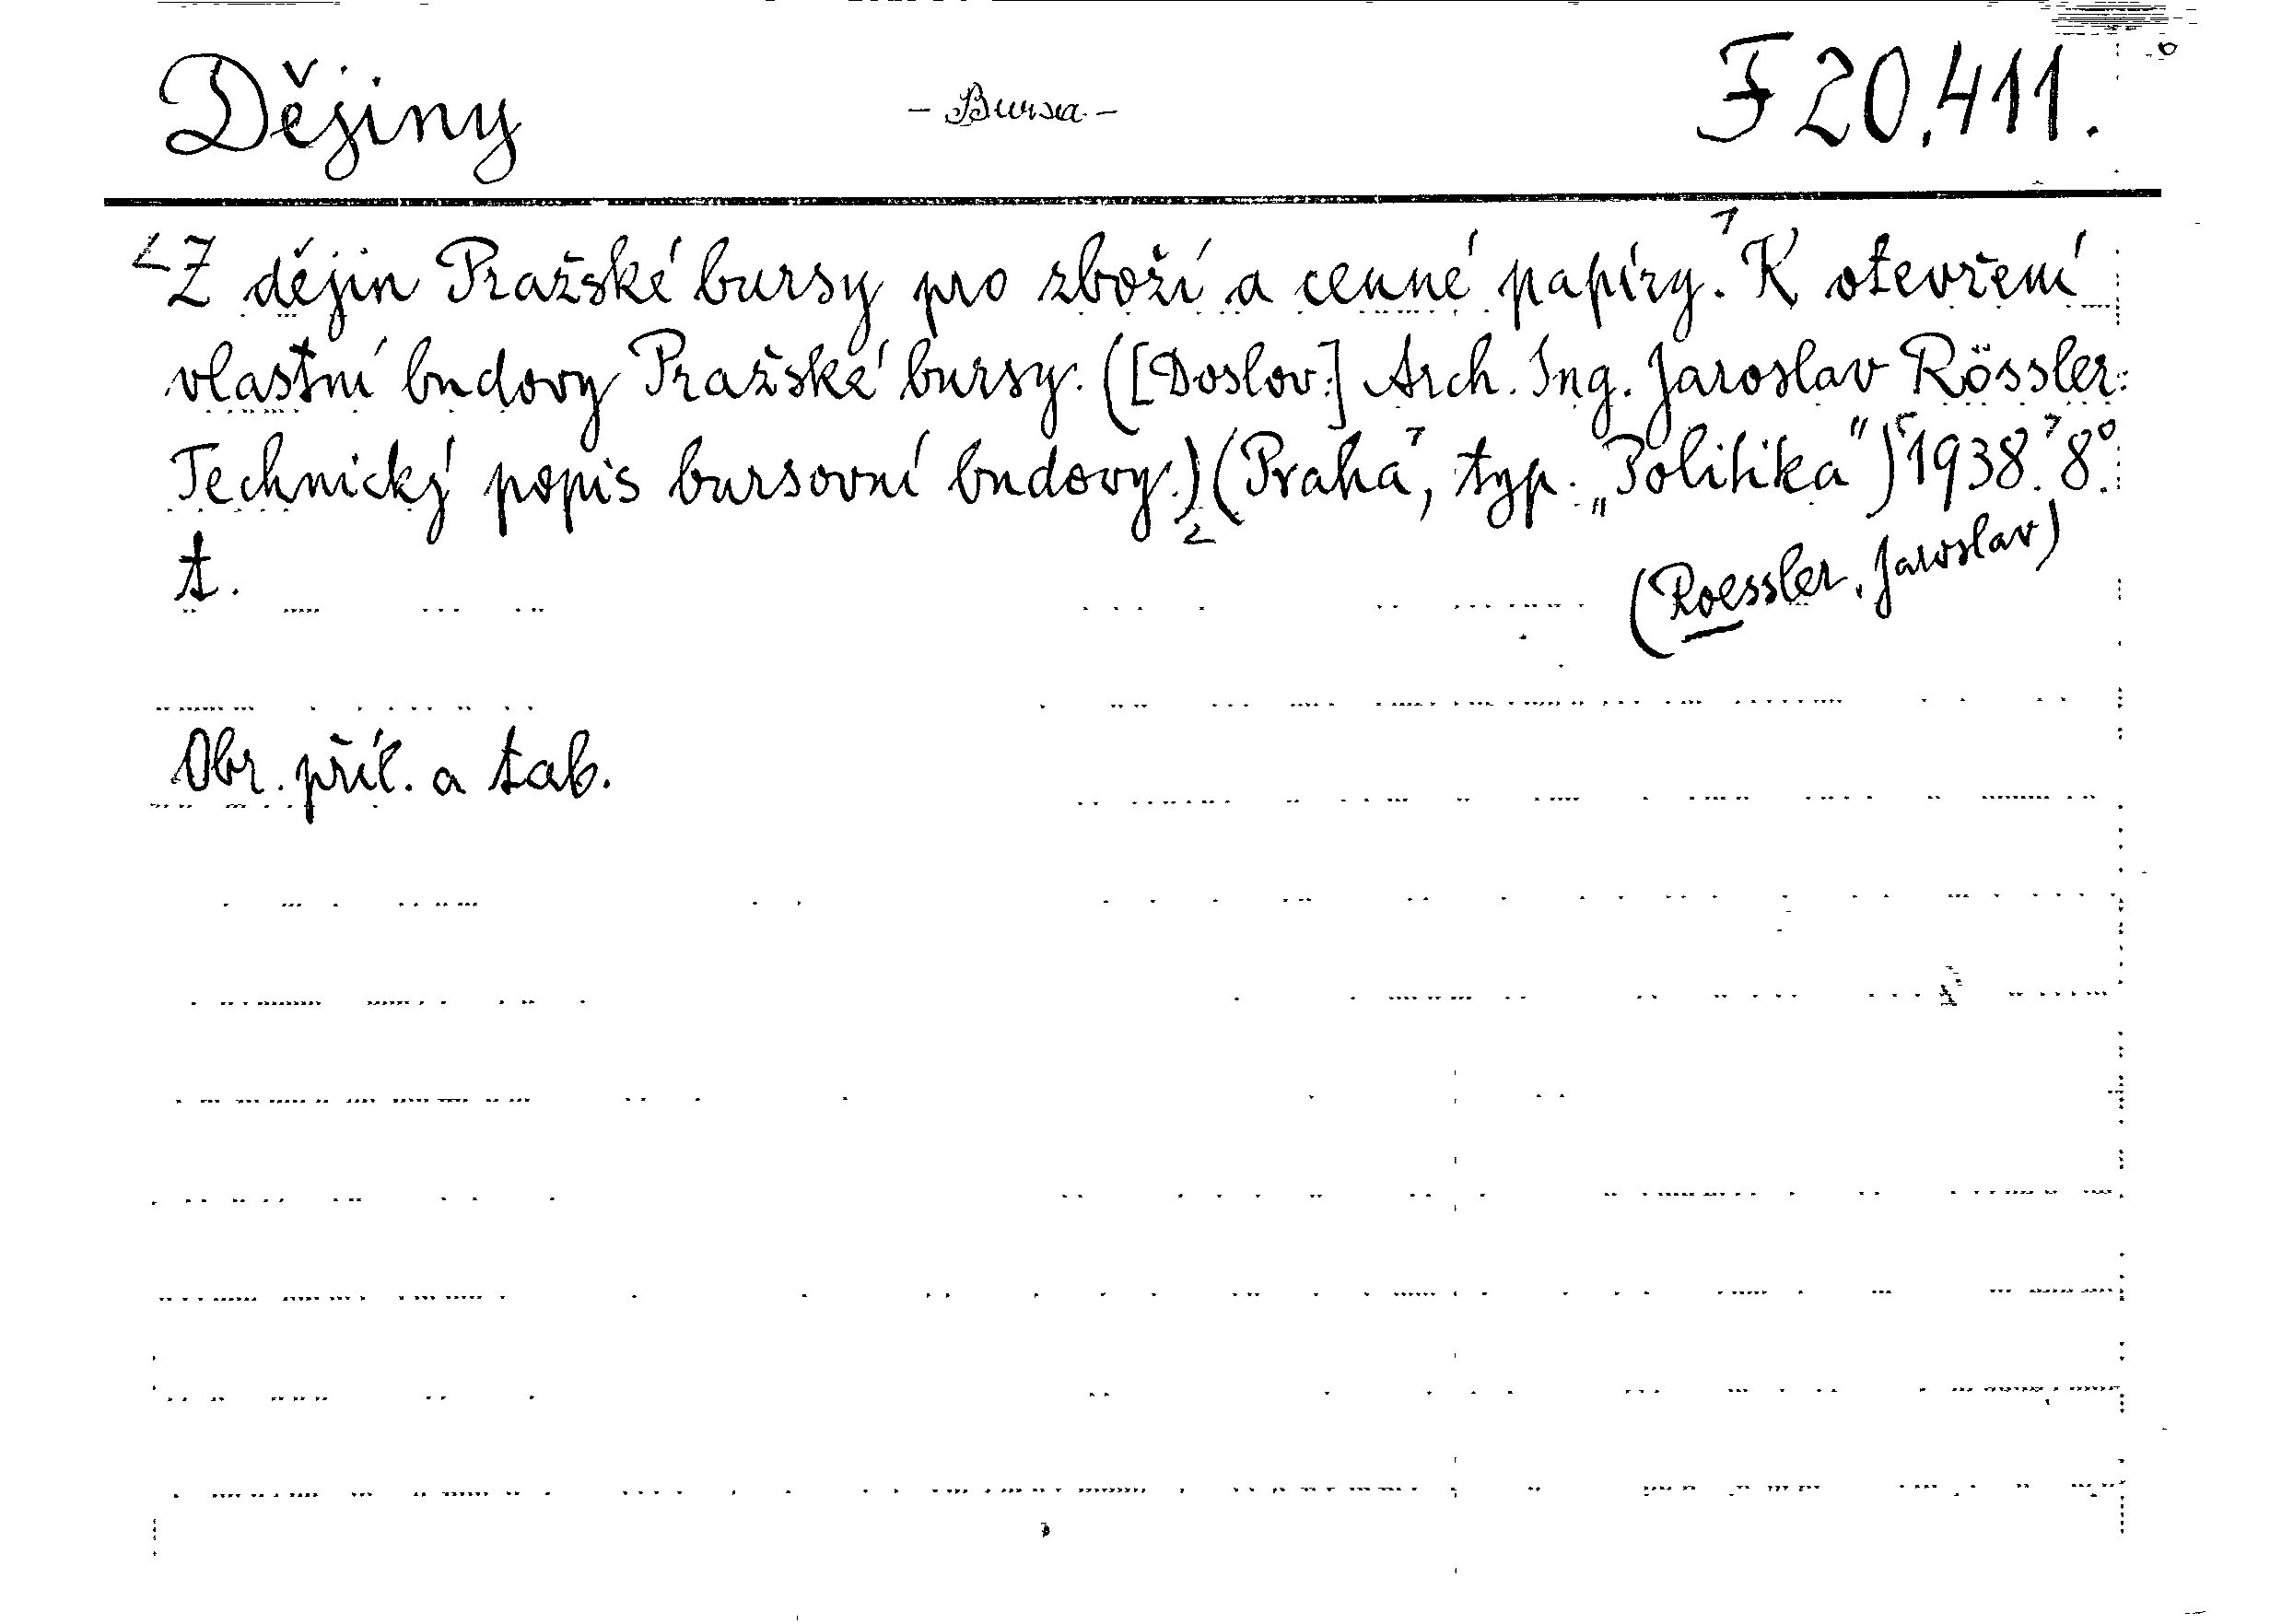 Dějiny - Bursa - F 20,411.
Z dějin Pražské bursy pro zboží a cenné papíry. K otevření
vlastní budovy Pražské bursy. ([Doslov:] Arch. Ing. Jaroslav Rössler:
Technický popis bursovní budovy.) (Praha, typ. „Politika") 1938. 8°.
t.
(Roessler, Jaroslav)
Obr. příl. a tab.